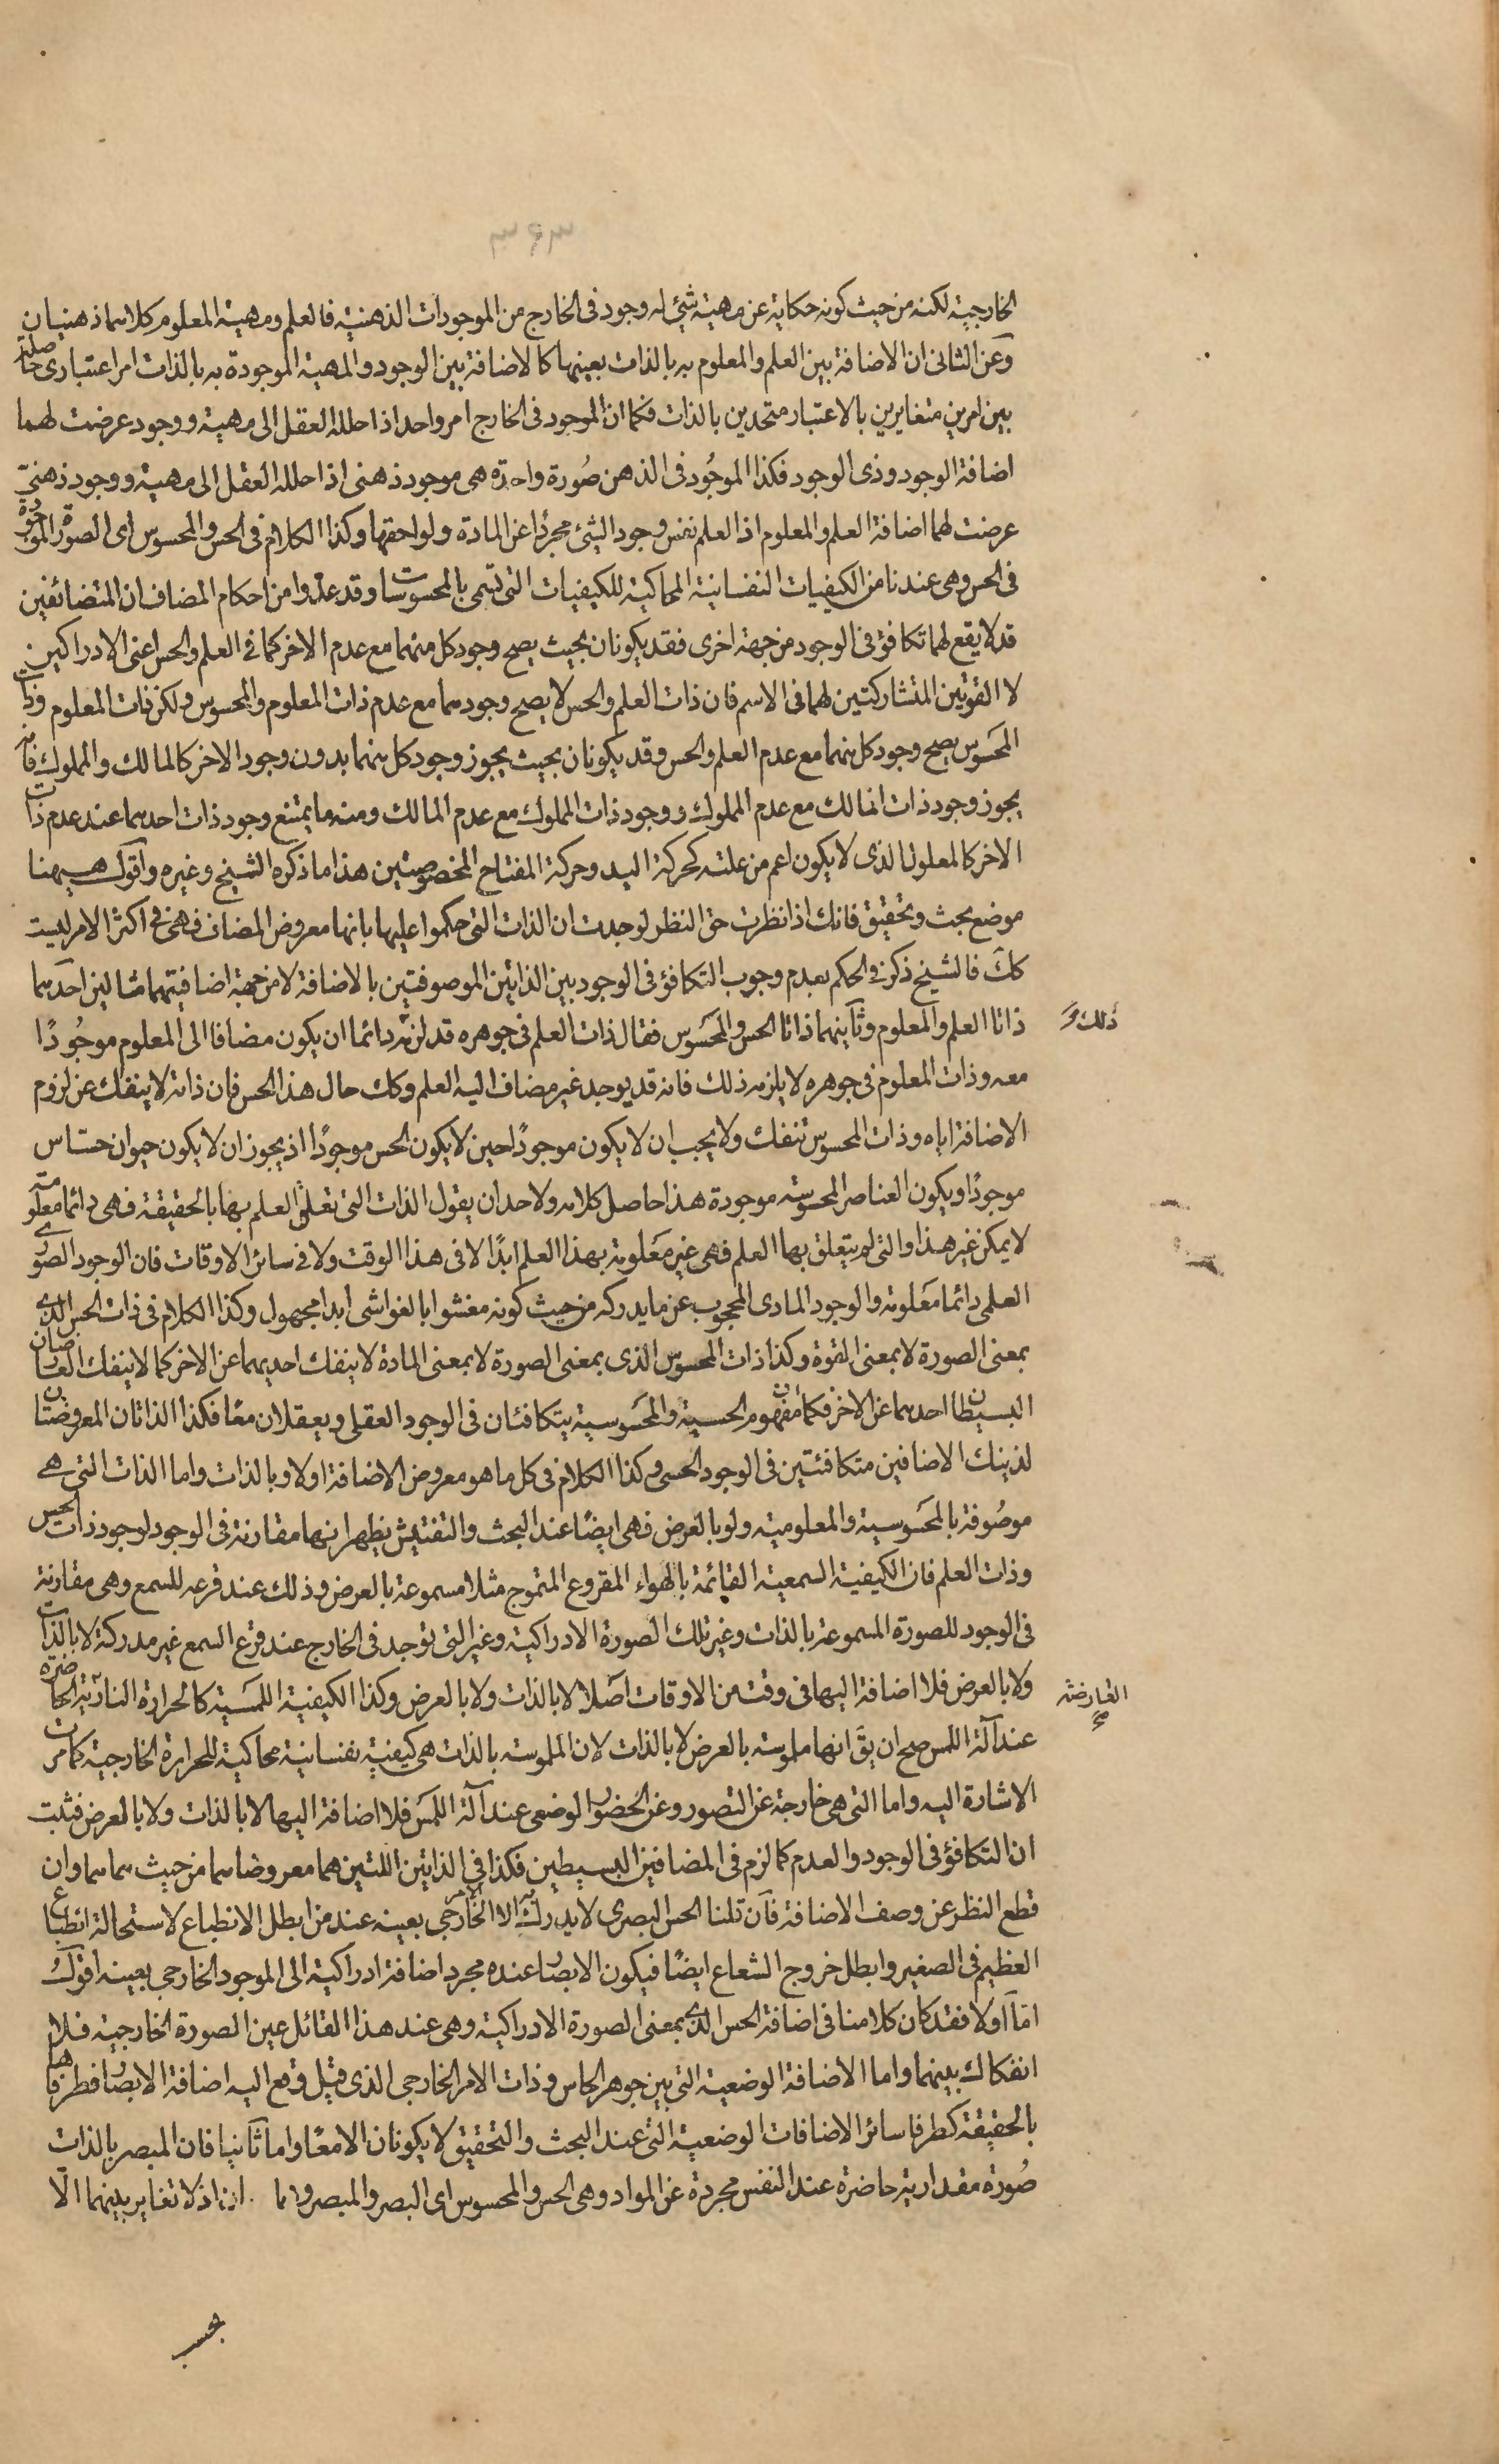 ٣٤٣
الخارجية لكنه من حيث كونه حكاية عن مهية شئ له وجود فى الخارج من الموجودات الذهنية فالعلم ومهية المعلوم كلاهما ذهنيان
وعن الثانى ان الاضافة بين العلم والمعلوم به بالذات بعينها كالاضافة بين الوجود والمهية الموجودة به بالذات امر اعتبارى حاصلة
بين امرين متغايرين بالاعتبار متحدين بالذات فكما ان الموجود فى الخارج امر واحد اذا حلله العقل الى مهية ووجود عرضت لهما
اضافة الوجود وذى الوجود فكذا الموجُود فى الذهن صُورة واحدة هى موجود ذهنى اذا حلله العقل الى مهية ووجود ذهنىّ
عرضت لهما اضافة العلم والمعلوم اذ العلم نفس وجود الشئ مجردًا عن المادة ولواحقها وكذا الكلام فى الحس والمحسوس اى الصورة الموجودة
فى الحس وهى عندنا من الكيفيات النفسانية المحاكية للكيفيات التى تسمى بالمحسوسات وقد عدّوا من احكام المضاف ان المتضائفين
قد لا يقع لهما تكافؤ فى الوجود من جهة اخرى فقد يكونان بحيث يصح وجود كل منهما مع عدم الاخر كما فى العلم والحس اعنى الادراكين
لا القوتين المتشاركتين لهما فى الاسم فان ذات العلم والحس لا يصح وجودهما مع عدم ذات المعلوم والمحسوس ولكن ذات المعلوم وذات
المحَسوس يصح وجود كل منهما مع عدم العلم والحس وقد يكونان بحيث يجوز وجود كل منهما بدون وجود الاخر كالمالك والمملوك فانه
يجوز وجود ذات المالك مع عدم المملوك ووجود ذات المملوك مع عدم المالك ومنه ما يمتنع وجود ذات احدهما عند عدم ذات
الاخر كالمعلول الذى لا يكون اعم من علته كحركة اليد وحركة المفتاح المخصوصتين هذا ما ذكره الشيخ وغيره واقول هيهنا
موضع بحث وتحقيق فانك اذا نظرت حق النظر لوجدت ان الذات التى حكموا عليها بانها معروض المضاف فهى فى اكثر الامر ليست
كك فالشيخ ذكر فى الحكم بعدم وجوب التكافؤ فى الوجود بين الذاتين الموصوفتين بالاضافة لا من جهة اضافيتهما مثالين احدهما
ذاتا العلم والمعلوم وثانيهما ذاتا الحس والمحَسوس فقال ذات العلم فى جوهره قد لزمه دائما ان يكون مضافا الى المعلوم موجُودًا
ذلك و
معه وذات المعلوم فى جوهره لا يلزمه ذلك فانه قد يوجد غير مضاف اليه العلم وكك حال هذا الحس فان ذاته لا ينفك عن لزوم
الاضافة اياه وذات المحسوس تنفك ولا يجب ان لا يكون موجودًا حين لا يكون الحس موجودًا اذ يجوز ان لا يكون حيوان حسّاس
موجودًا ويكون العناصر المحسوسة موجودة هذا حاصل كلامه ولاحد ان يقول الذات التى تعلق العلم بها بالحقيقة فهى دائما معلومة
لا يمكن غير هذا والتى لم يتعلق بها العلم فهى غير معَلومة بهذا العلم ابدًا لا فى هذا الوقت ولا فى سائر الاوقات فان الوجود الصورى
العلمى دائما معَلومة والوجود المادى المحجوب عن ما يدركه من حيث كونه مغشوا بالغواشى ابدا مجهول وكذا الكلام فى ذات الحس الذى
بمعنى الصورة لا بمعنى القوة وكذا ذات المحسوس الذى بمعنى الصورة لا بمعنى المادة لا ينفك احديهما عن الاخر كما لا ينفك العارضان
البسيطان احدهما عن الاخر فكما ان مفهوم الحسية والمحَسوسية يتكافئان فى الوجود العقلى ويعقلان معًا فكذا الذاتان المعروضتان
لذينك الاضافين متكافئتين فى الوجود الحسى وكذا الكلام فى كل ما هو معروض الاضافة اولا وبالذات واما الذات التى هى
موصُوفة بالمحَسوسية والمعلومية ولو بالعرض فهى ايضًا عند البحث والتفتيش يظهر انها مقارنة فى الوجود لوجود ذات الحس
وذات العلم فان الكيفية السمعية القائمة بالهواء المقروع المتموج مثلا مسموعة بالعرض وذلك عند قرعه للسمع وهى مقارنة
فى الوجود للصورة المسموعة بالذات وغير تلك الصورة الادراكية وغير التى توجد فى الخارج عند قرع السمع غير مدركة لا بالذات
ولا بالعرض فلا اضافة اليها فى وقت من الاوقات اصَلا لا بالذات ولا بالعرض وكذا الكيفية اللمسَية كالحرارة النارية الحاضرة
العارضة
عند آلة اللمس صح ان يقَ انها ملموسة بالعرض لا بالذات لان الملموسة بالذات هى كيفية نفسانية محاكية للحرارة الخارجية كما مرت
الاشارة اليه واما التى هى خارجة عن التصور وعن الحُضور الوضعى عند آلة اللمَس فلا اضافة اليها لا بالذات ولا بالعرض فثبت
ان التكافؤ فى الوجود والعدم كما لزم فى المضافين البسيطين فكذا فى الذاتين اللتين هما معروضاهما من حيث هما هما وان
قطع النظر عن وصف الاضافة فان قلنا الحس البصرى لا يدرك به الا الامر الخارجى بعينه عند من ابطل الانطباع لاستحالة انطباع
العظيم فى الصغير وابطل خروج الشعاع ايضًا فيكون الابصار عنده مجرد اضافة ادراكية الى الموجود الخارجى بعينه اقول
امّا اولا فقد كان كلامنا فى اضافة الحس الذى بمعنى الصورة الادراكية وهى عند هذا القائل عين الصورة الخارجية فلا
انفكاك بينهما واما الاضافة الوضعية التى بين جوهر الحاس وذات الامر الخارجى الذى قيل وقع اليه اضافة الابصار فطرفاها
بالحقيقة كطرفا سائر الاضافات الوضعية التى عند البحث والتحقيق لا يكونان الا معًا واما ثانيا فان المبصر بالذات
صُورة مقدارية حاضرة عند النفس مجردة عن المواد وهى الحس والمحسوس اى البصر والمبصر وهما اذ لا تغاير بينهما الّا
بحسب